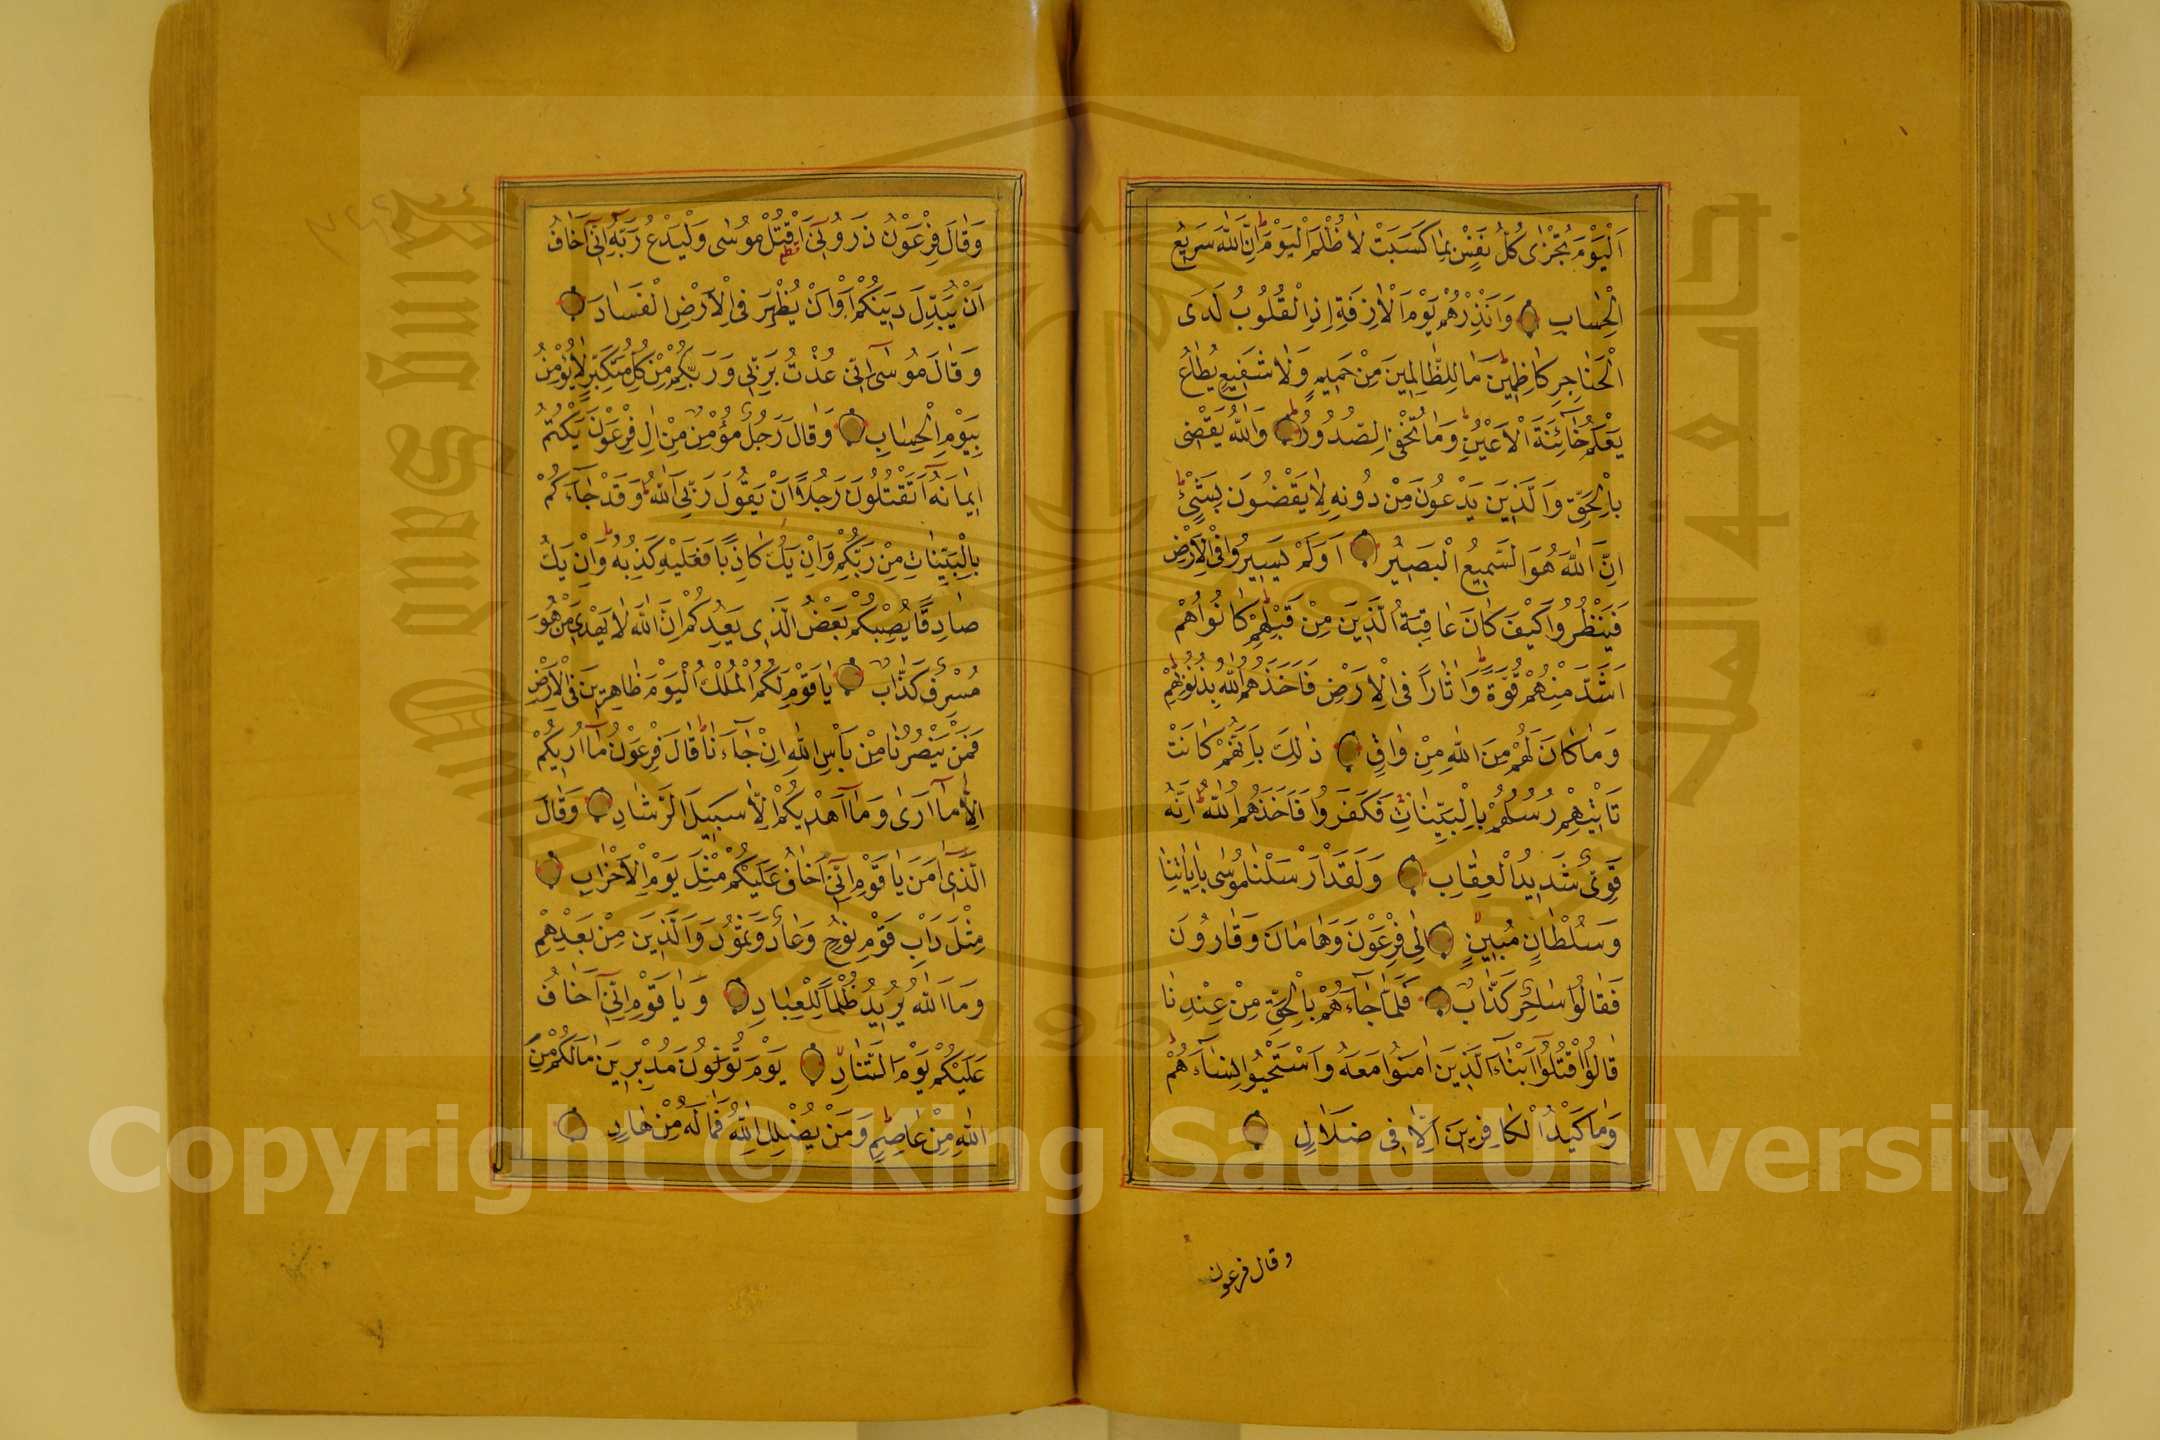 اَلْيَوْمَ تُجْزٰى كُلُّ نَفْسٍ بِمَا كَسَبَتْ لَا ظُلْمَ الْيَوْمَ اِنَّ اللّٰهَ سَرِيعُ
الْحِسَابِ وَاَنْذِرْهُمْ يَوْمَ الْاٰزِفَةِ اِذِ الْقُلُوبُ لَدَى
الْحَنَاجِرِ كَاظِمِينَ مَا لِلظَّالِمِينَ مِنْ حَمِيمٍ وَلَا شَفِيعٍ يُطَاعُ
يَعْلَمُ خَٓائِنَةَ الْاَعْيُنِ وَمَا تُخْفِى الصُّدُورُ وَاللّٰهُ يَقْضِى
بِالْحَقِّ وَالَّذِينَ يَدْعُونَ مِنْ دُونِهِ لَا يَقْضُونَ بِشَىْءٍ
اِنَّ اللّٰهَ هُوَ السَّمِيعُ الْبَصِيرُ اَوَلَمْ يَسِيرُوا فِى الْاَرْضِ
فَيَنْظُرُوا كَيْفَ كَانَ عَاقِبَةُ الَّذِينَ مِنْ قَبْلِهِمْ كَانُوا هُمْ
اَشَدَّ مِنْهُمْ قُوَّةً وَاٰثَارًا فِى الْاَرْضِ فَاَخَذَهُمُ اللّٰهُ بِذُنُوبِهِمْ
وَمَا كَانَ لَهُمْ مِنَ اللّٰهِ مِنْ وَاقٍ ذٰلِكَ بِاَنَّهُمْ كَانَتْ
تَاْتِيهِمْ رُسُلُهُمْ بِالْبَيِّنَاتِ فَكَفَرُوا فَاَخَذَهُمُ اللّٰهُ اِنَّهُ
قَوِىٌّ شَدِيدُ الْعِقَابِ وَلَقَدْ اَرْسَلْنَا مُوسٰى بِاٰيَاتِنَا
وَسُلْطَانٍ مُبِينٍ اِلٰى فِرْعَوْنَ وَهَامَانَ وَقَارُونَ
فَقَالُوا سَاحِرٌ كَذَّابٌ فَلَمَّا جَٓاءَهُمْ بِالْحَقِّ مِنْ عِنْدِنَا
قَالُوا اقْتُلُٓوا اَبْنَٓاءَ الَّذِينَ اٰمَنُوا مَعَهُ وَاسْتَحْيُوا نِسَٓاءَهُمْ
وَمَا كَيْدُ الْكَافِرِينَ اِلَّا فِى ضَلَالٍ
وقال فرعون
وَقَالَ فِرْعَوْنُ ذَرُونِٓى اَقْتُلْ مُوسٰى وَلْيَدْعُ رَبَّهُ اِنِّٓى اَخَافُ
اَنْ يُبَدِّلَ دِينَكُمْ اَوْ اَنْ يُظْهِرَ فِى الْاَرْضِ الْفَسَادَ
وَقَالَ مُوسٰٓى اِنِّى عُذْتُ بِرَبِّى وَرَبِّكُمْ مِنْ كُلِّ مُتَكَبِّرٍ لَا يُؤْمِنُ
بِيَوْمِ الْحِسَابِ وَقَالَ رَجُلٌ مُؤْمِنٌ مِنْ اٰلِ فِرْعَوْنَ يَكْتُمُ
اِيمَانَهُٓ اَتَقْتُلُونَ رَجُلًا اَنْ يَقُولَ رَبِّىَ اللّٰهُ وَقَدْ جَٓاءَكُمْ
بِالْبَيِّنَاتِ مِنْ رَبِّكُمْ وَاِنْ يَكُ كَاذِبًا فَعَلَيْهِ كَذِبُهُ وَاِنْ يَكُ
صَادِقًا يُصِبْكُمْ بَعْضُ الَّذِى يَعِدُكُمْ اِنَّ اللّٰهَ لَا يَهْدِى مَنْ هُوَ
مُسْرِفٌ كَذَّابٌ يَا قَوْمِ لَكُمُ الْمُلْكُ الْيَوْمَ ظَاهِرِينَ فِى الْاَرْضِ
فَمَنْ يَنْصُرُنَا مِنْ بَاْسِ اللّٰهِ اِنْ جَٓاءَنَا قَالَ فِرْعَوْنُ مَٓا اُرِيكُمْ
اِلَّا مَٓا اَرٰى وَمَٓا اَهْدِيكُمْ اِلَّا سَبِيلَ الرَّشَادِ وَقَالَ
الَّذِٓى اٰمَنَ يَا قَوْمِ اِنِّٓى اَخَافُ عَلَيْكُمْ مِثْلَ يَوْمِ الْاَحْزَابِ
مِثْلَ دَاْبِ قَوْمِ نُوحٍ وَعَادٍ وَثَمُودَ وَالَّذِينَ مِنْ بَعْدِهِمْ
وَمَا اللّٰهُ يُرِيدُ ظُلْمًا لِلْعِبَادِ وَيَا قَوْمِ اِنِّٓى اَخَافُ
عَلَيْكُمْ يَوْمَ التَّنَادِ يَوْمَ تُوَلُّونَ مُدْبِرِينَ مَا لَكُمْ مِنَ
اللّٰهِ مِنْ عَاصِمٍ وَمَنْ يُضْلِلِ اللّٰهُ فَمَا لَهُ مِنْ هَادٍ
King Saud University
جامعة الملك سعود
1957
Copyright © King Saud University